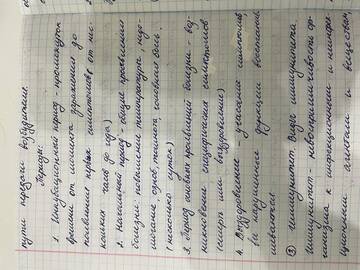 пути передачи возбудителя.
Периоды:
1. Инкубационный период - промежуток
времени от момента заражения до
появления первых симптомов, от нес-
кольких часов до года)
2. Начальный период - общие проявления
болезни: повышение температуры, недо-
могание, озноб, тошнота, головная боль.
(несколько суток)
3. Период основных проявлений болезни - воз-
никновение специфических симптомов
(смерть или выздоровление)
4. Выздоровление - угасание симптомов
нарушенные функции восстанав
ливаются
② Иммунитет. Виды иммунитета.
Иммунитет - невосприимчивость ор-
ганизма к инфекционным и неинфек
ционным агентам и веществам,